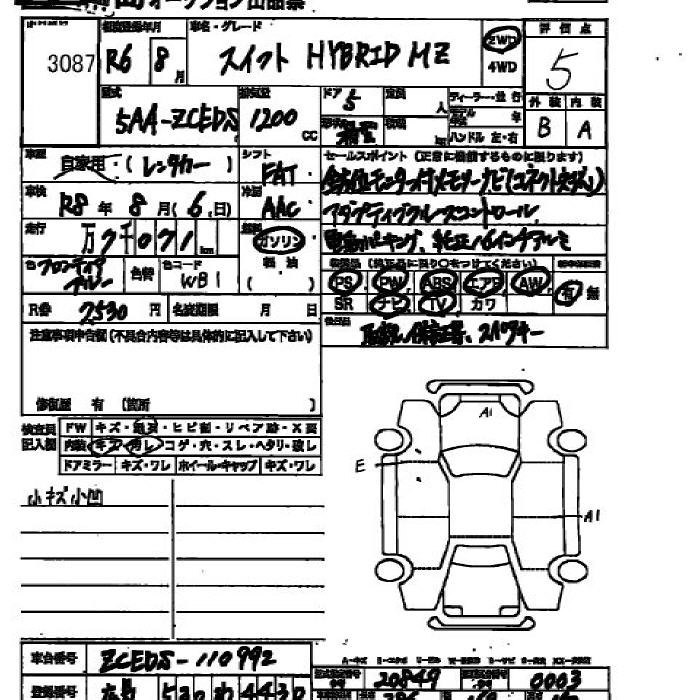 オークション出品票
3087
初度登録年月
R6 8月
車名・グレード
スイフト HYBRID MZ
2WD
4WD
評価点
5
型式
5AA-ZCEDS
排気量
1200 cc
ドア
5
人
ディーラー・並行
年
ハンドル 左・右
外装 内装
B A
車歴
自家用・(レンタカー)
シフト
FAT
セールスポイント (正常に機能するものに限ります)
全方位モニター付メモリーナビ(コネクト対応)
アダプティブクルーズコントロール
電動パーキング、純正16インチアルミ
車検
R8年 8月(6日)
冷房
AAC
走行
万7千071km
燃料
ガソリン
軽油
( )
色 フロンティアブルー
色替
色コード
WB1
(純正品に限り○をつけてください)
PS PW ABS エアB AW
SR ナビ TV カワ
有 無
R券 7530円
名変期限 月 日
注意事項申告欄(不具合内容等は具体的に記入して下さい)
修復歴 有 (箇所 )
検査員記入欄
FW キズ・ ・ヒビ割・リペア跡・X要
内装 キズ・汚レ・コゲ・穴・スレ・ヘタリ・破レ
ドアミラー キズ・ワレ ホイール・キャップ キズ・ワレ
小キズ小凹
A1
E
A1
車台番号 ZCEDS-110992
20849
0003
登録番号
530 わ 4430